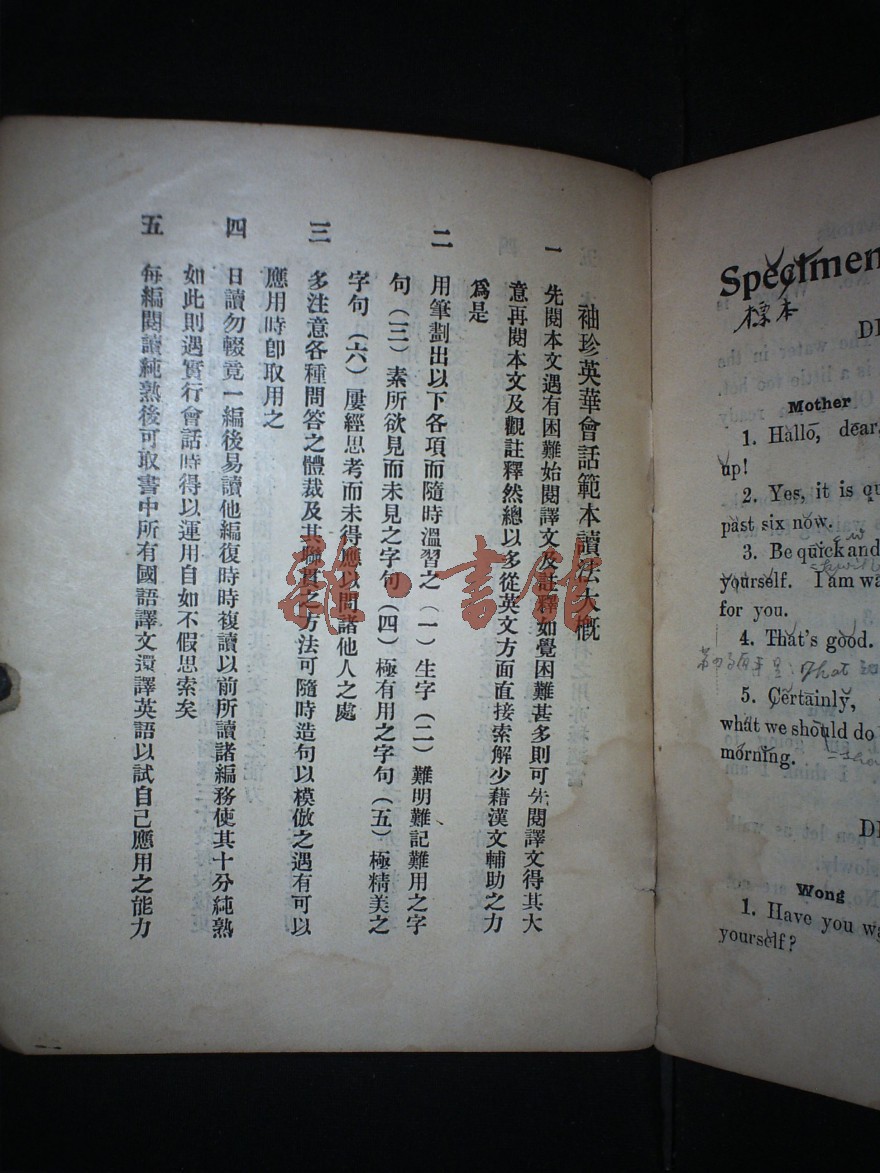 袖珍英華會話範本讀法大槪
一 先閱本文遇有困難始閱譯文及註釋如覺困難甚多則可先閱譯文得其大
意再閱本文及觀註釋然總以多從英文方面直接索解少藉漢文輔助之力
爲是
二 用筆劃出以下各項而隨時溫習之（一）生字（二）難明難記難用之字
句（三）素所欲見而未見之字句（四）極有用之字句（五）極精美之
字句（六）屢經思考而未得應以問諸他人之處
三 多注意各種問答之體裁及其聯貫之方法可隨時造句以模倣之遇有可以
應用時卽取用之
四 日讀勿輟竟一編後易讀他編復時時複讀以前所讀諸編務使其十分純熟
如此則遇實行會話時得以運用自如不假思索矣
五 每編閱讀純熟後可取書中所有國語譯文還譯英語以試自己應用之能力
雜·書館
Specimen
標本
Mother
1. Hallo, dear,
up!
2. Yes, it is
past six now.
3. Be quick and
yourself. I am
for you.
4. That's good.
That
5. Certainly,
what we should do
morning.
Wong
1. Have you
yourself?